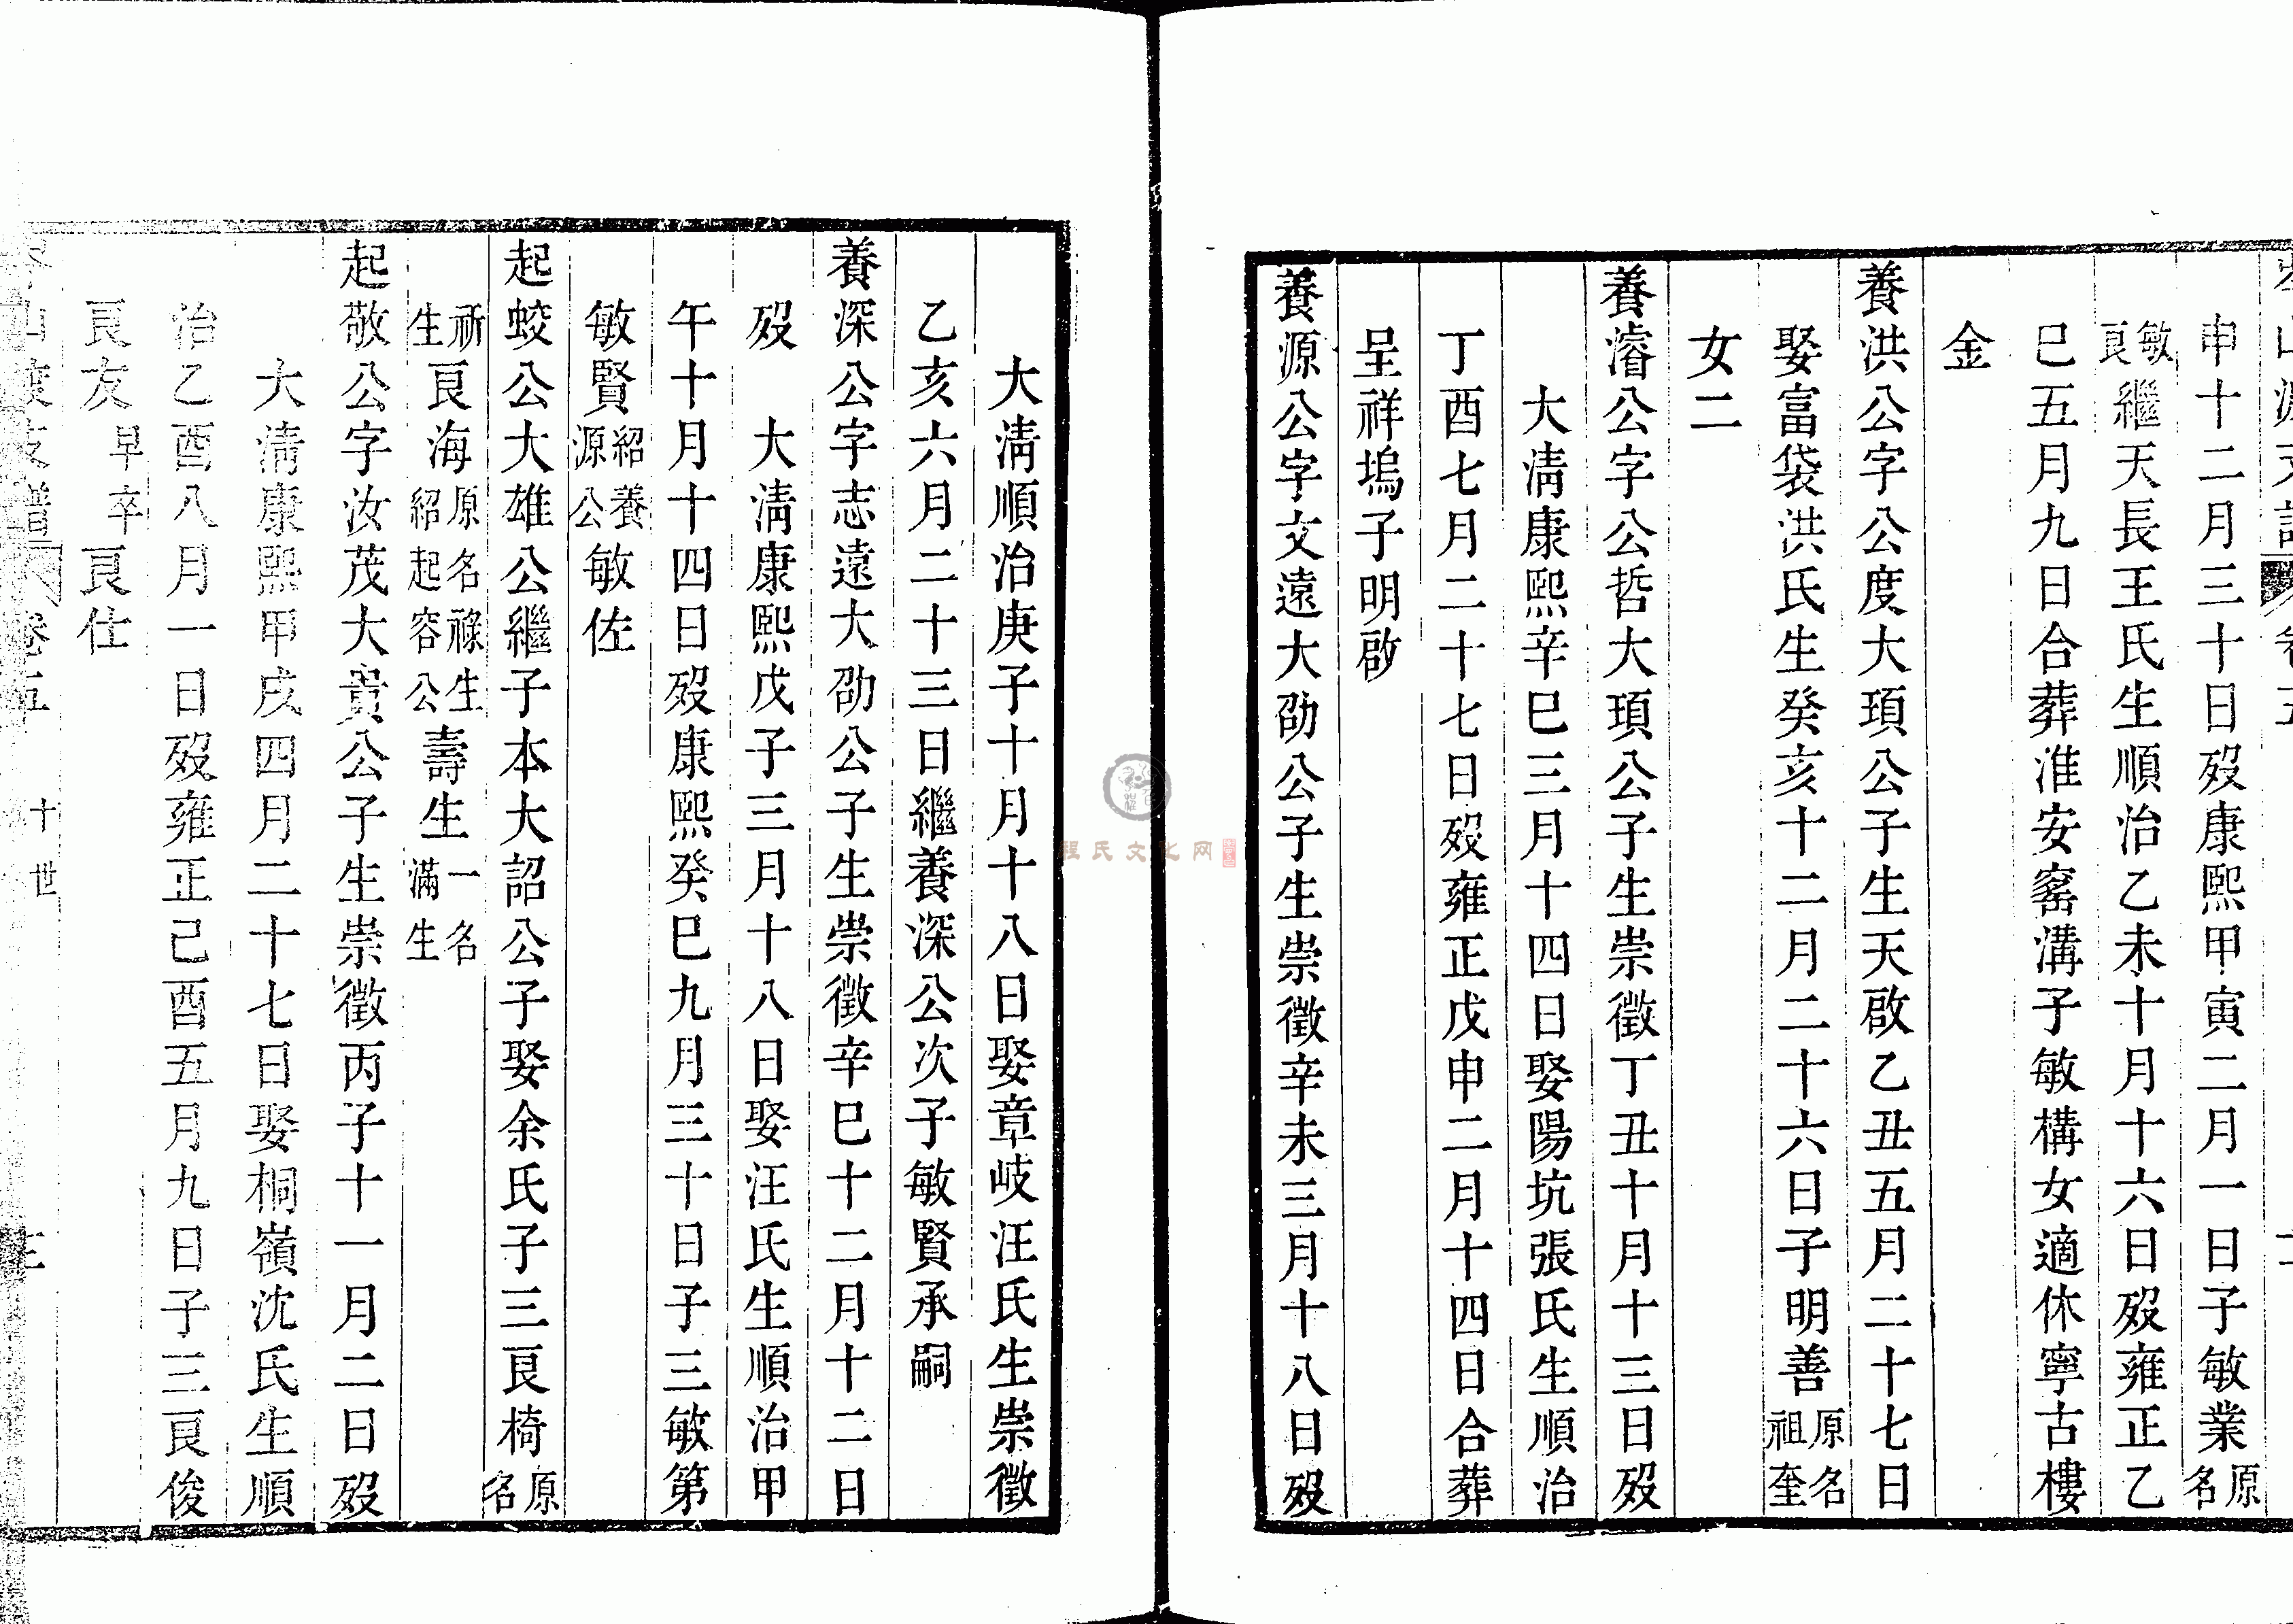 申十二月三十日歿康熙甲寅二月一日子敏業原名
敏良繼天長王氏生順治乙未十月十六日歿雍正乙
巳五月九日合葬淮安窰溝子敏構女適休寧古樓
金
養洪公字公度大頊公子生天啟乙丑五月二十七日
娶富袋洪氏生癸亥十二月二十六日子明善原名祖奎
女二
養濬公字公哲大頊公子生崇徵丁丑十月十三日歿
大淸康熙辛巳三月十四日娶陽坑張氏生順治
丁酉七月二十七日歿雍正戊申二月十四日合葬
呈祥塢子明啟
養源公字文遠大劭公子生崇徵辛未三月十八日歿
大淸順治庚子十月十八日娶章岐汪氏生崇徵
乙亥六月二十三日繼養深公次子敏賢承嗣
養深公字志遠大劭公子生崇徵辛巳十二月十二日
歿大淸康熙戊子三月十八日娶汪氏生順治甲
午十月十四日歿康熙癸巳九月三十日子三敏第
敏賢紹養源公敏佐
起蛟公大雄公繼子本大詔公子娶余氏子三良椅原名
祈生良海原名祿生紹起容公壽生一名滿生
起敬公字汝茂大貴公子生崇徵丙子十一月二日歿
大淸康熙甲戌四月二十七日娶桐嶺沈氏生順
治乙酉八月一日歿雍正己酉五月九日子三良俊
良友早卒良仕
支譜 卷五 十世
程氏文化网